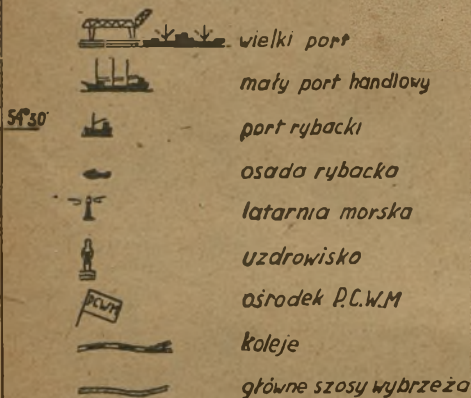 wielki port
mały port handlowy
54°30'
port rybacki
osada rybacka
latarnia morska
uzdrowisko
PCWM
ośrodek P.C.W.M
koleje
główne szosy wybrzeża